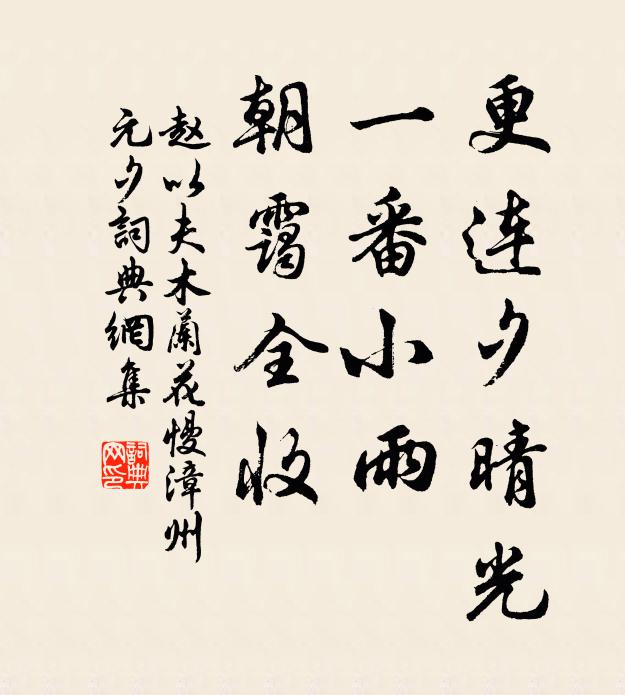 更连夕晴光
一番小雨
朝靄全收
赵以夫木蘭花慢漳州
元夕詞典網集
詞典
网印